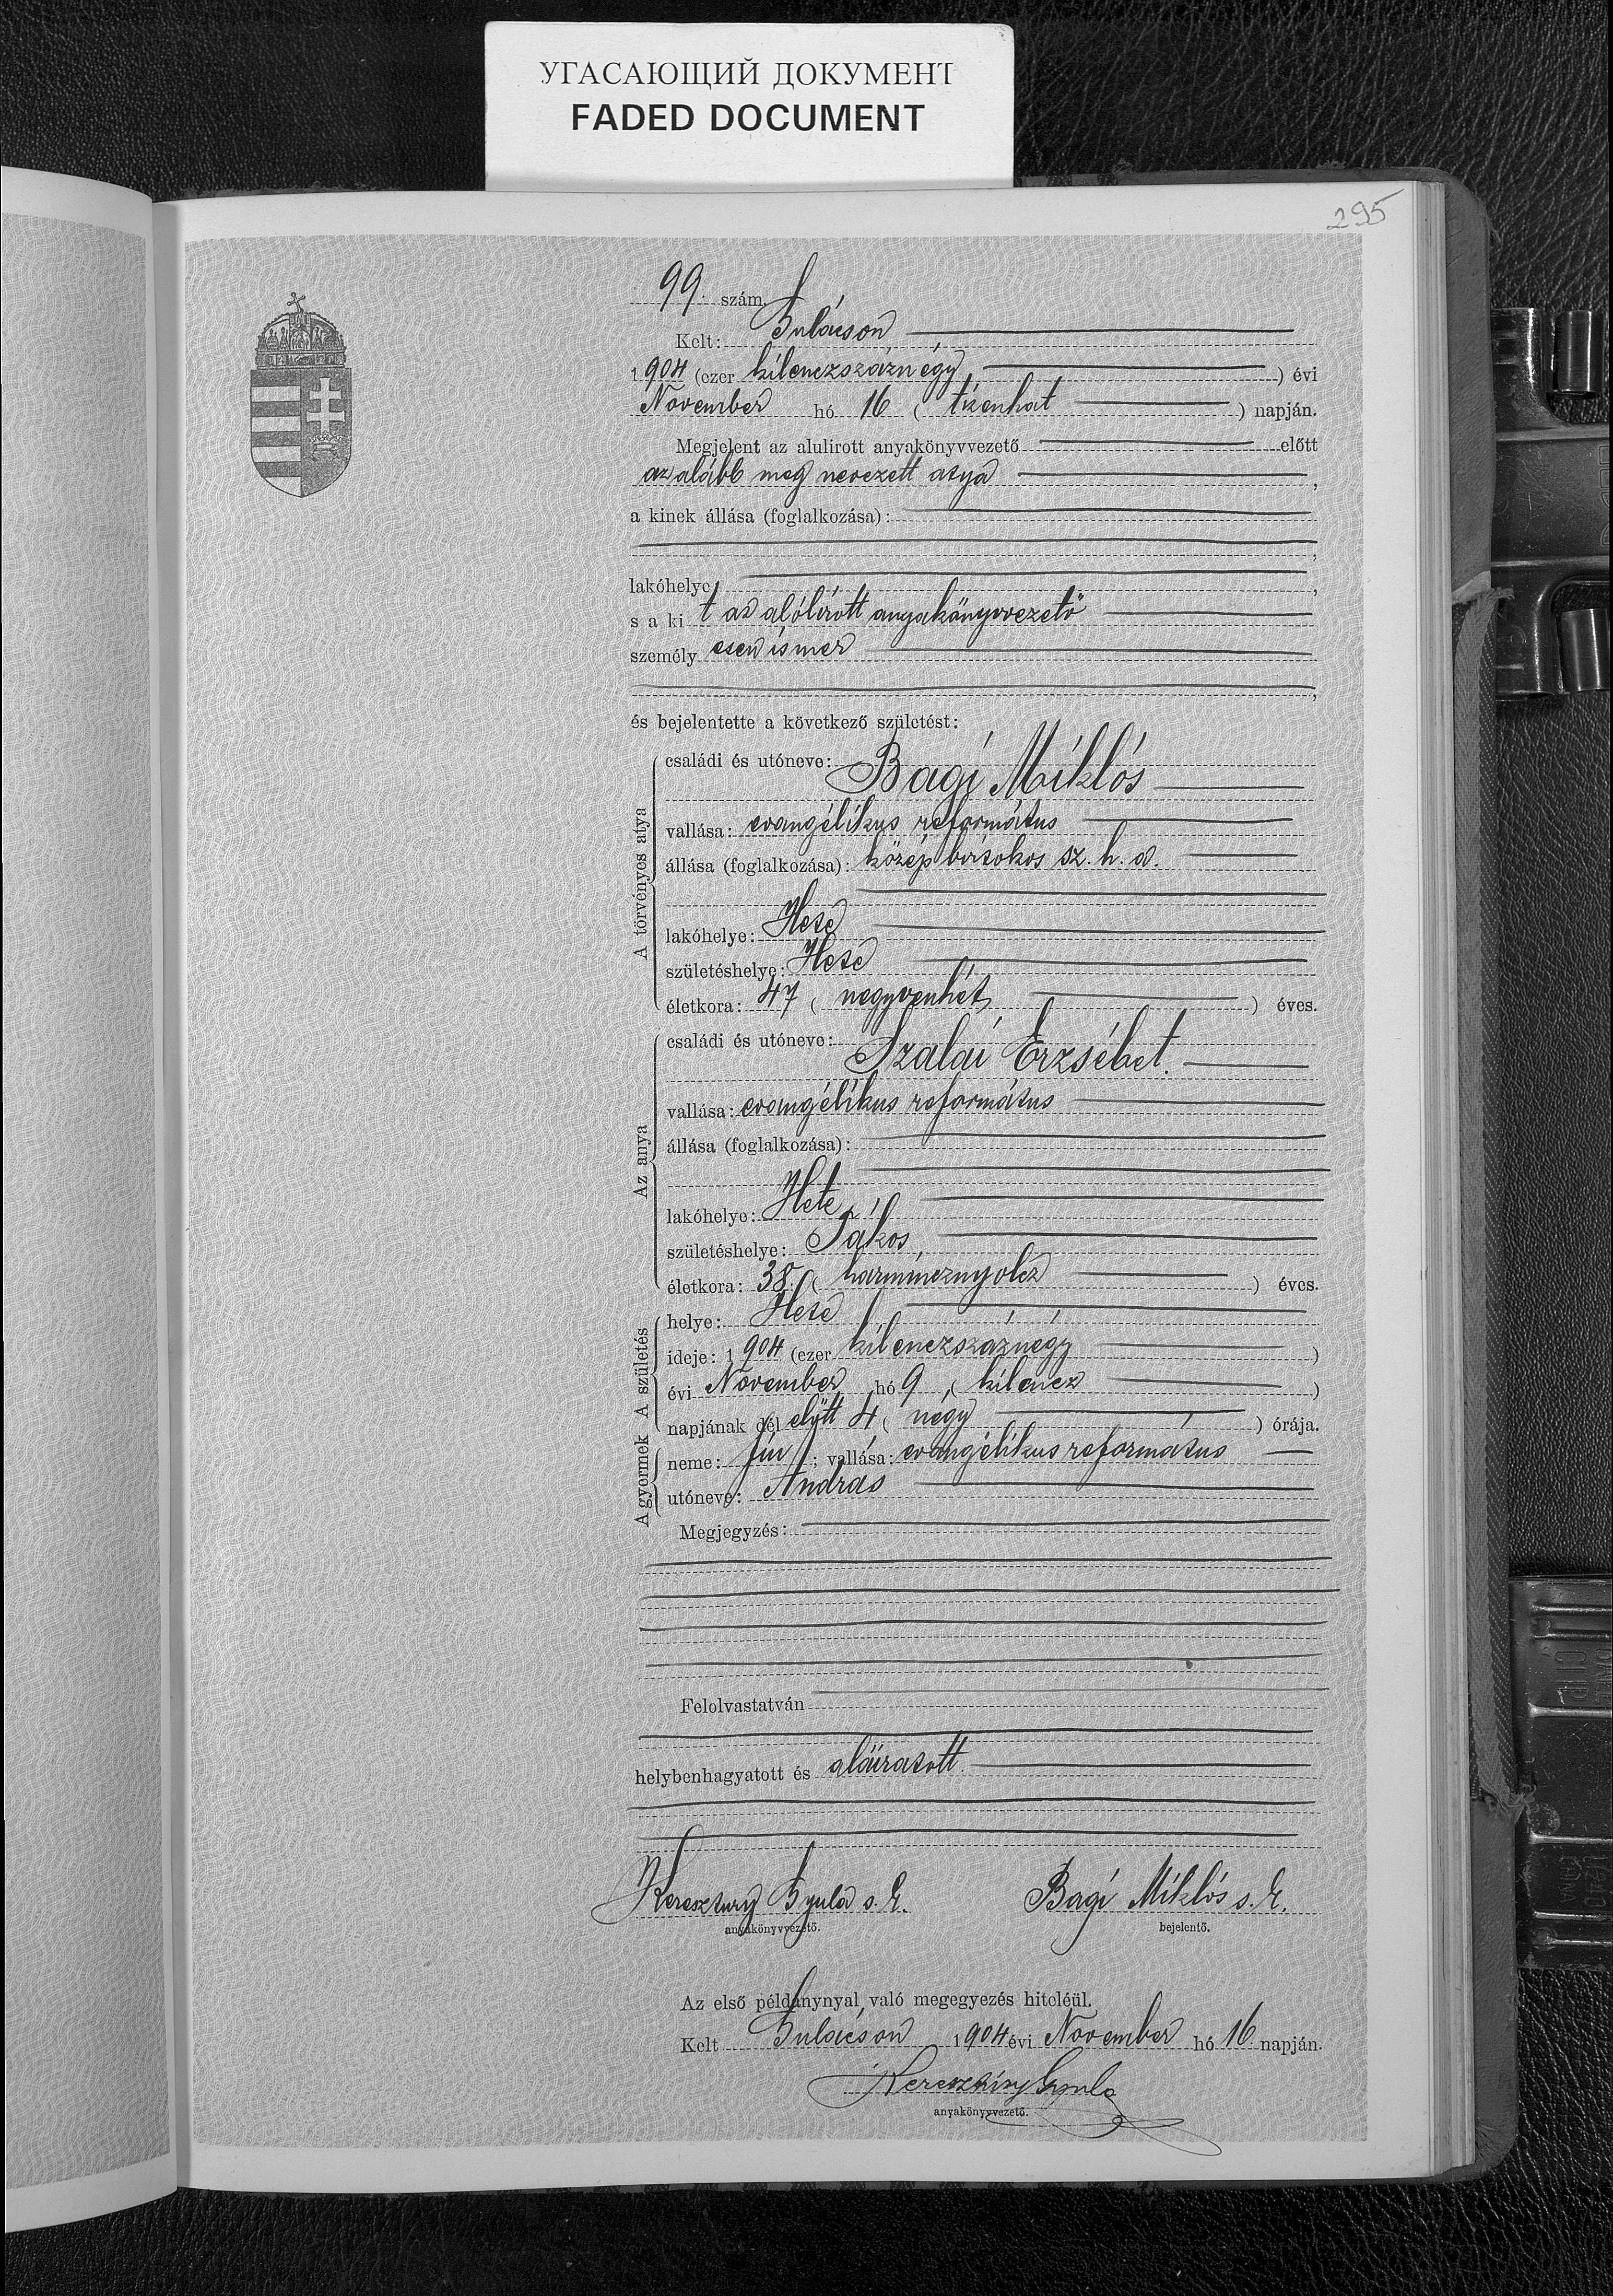 УГАСАЮЩИЙ ДОКУМЕНТ
FADED DOCUMENT
295
99. szám.
Kelt: Gulácson
1904 (ezer kilenczszáznégy) évi
November hó 16 (tizenhat) napján.
Megjelent az alulirott anyakönyvvezető előtt
az alább meg nevezett atya,
a kinek állása (foglalkozása):
lakóhelye
s a kit az alólírott anyakönyvvezető
személyesen ismer
és bejelentette a következő születést:
A törvényes atya
családi és utóneve: Bagi Miklós
vallása: evangélikus református
állása (foglalkozása): közép birtokos sz. h. a.
lakóhelye: Hete
születéshelye: Hete
életkora: 47 (negyvenhét) éves.
Az anya
családi és utóneve: Szalai Erzsébet.
vallása: evangélikus református
állása (foglalkozása):
lakóhelye: Hete
születéshelye: Tákos
életkora: 38 (harmincznyolcz) éves.
A születés
helye: Hete
ideje: 1904 (ezer kilenczszáznégy)
évi November hó 9 (kilencz)
napjának dél előtt 4 (négy) órája.
A gyermek
neme: fiu; vallása: evangélikus református
utóneve: András
Megjegyzés:
Felolvastatván
helybenhagyatott és aláiratott.
Keresztury Gyula s. k. Bagi Miklós s. k.
anyakönyvvezető. bejelentő.
Az első példánynyal való megegyezés hiteléül.
Kelt Gulácson 1904 évi November hó 16 napján.
Keresztúry Gyula
anyakönyvvezető.